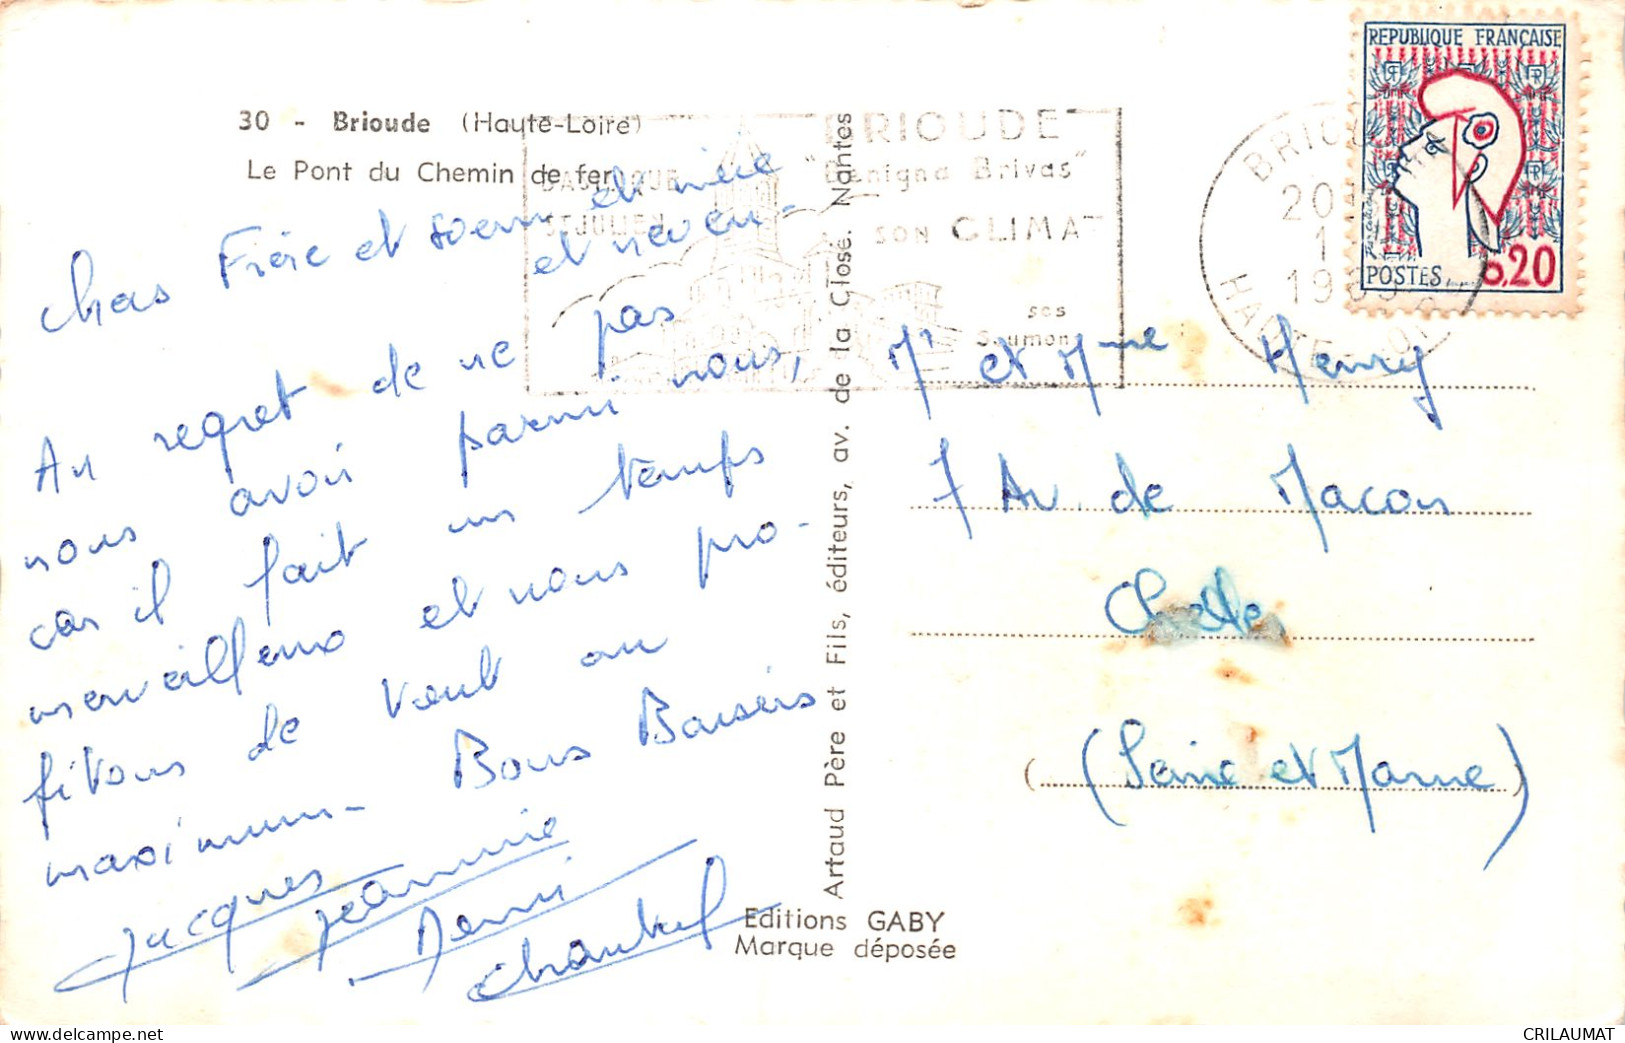 30 - Brioude (Haute-Loire)
Le Pont du Chemin de fer
BASILIQUE
ST JULIEN
BRIOUDE
"Benigna Brivas"
SON CLIMAT
ses
Saumons
BRIOUDE
20
1
19
HAUTE-LOIRE
REPUBLIQUE FRANÇAISE
POSTES
0,20
Chers Frère et soeur et nièce
et neveu-
Au regret de ne pas
nous avoir parmi nous,
car il fait un temps
merveilleux et nous pro-
fitons de tout au
maximum - Bons Baisers
Jacques Jeannine
Denni
Chantal
Artaud Père et Fils, éditeurs, av. de la Close. Nantes
Mr et Mme Henry
7 Av. de Macon
Chelles
(Seine et Marne)
Editions GABY
Marque déposée
www.delcampe.net
CRILAUMAT